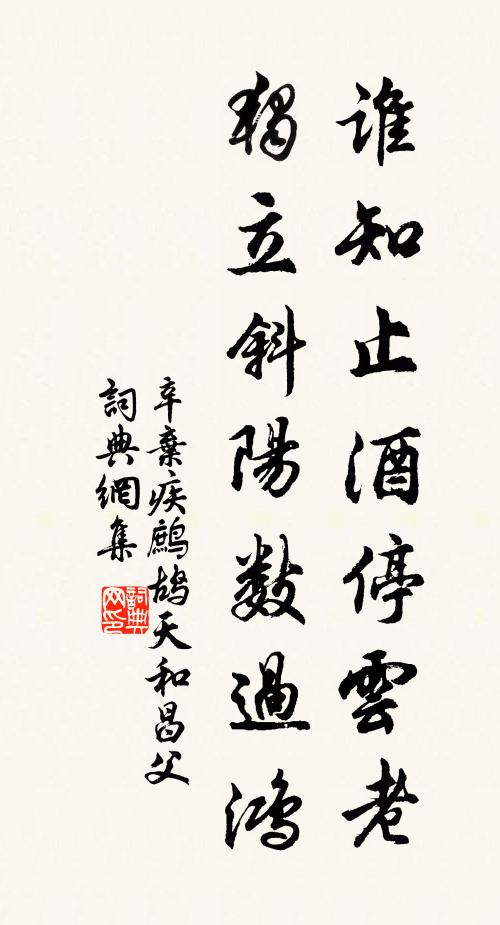 誰知止酒停雲老
獨立斜陽數過鴻
辛棄疾鷓鴣天和昌父
詞典網集
詞典
网印